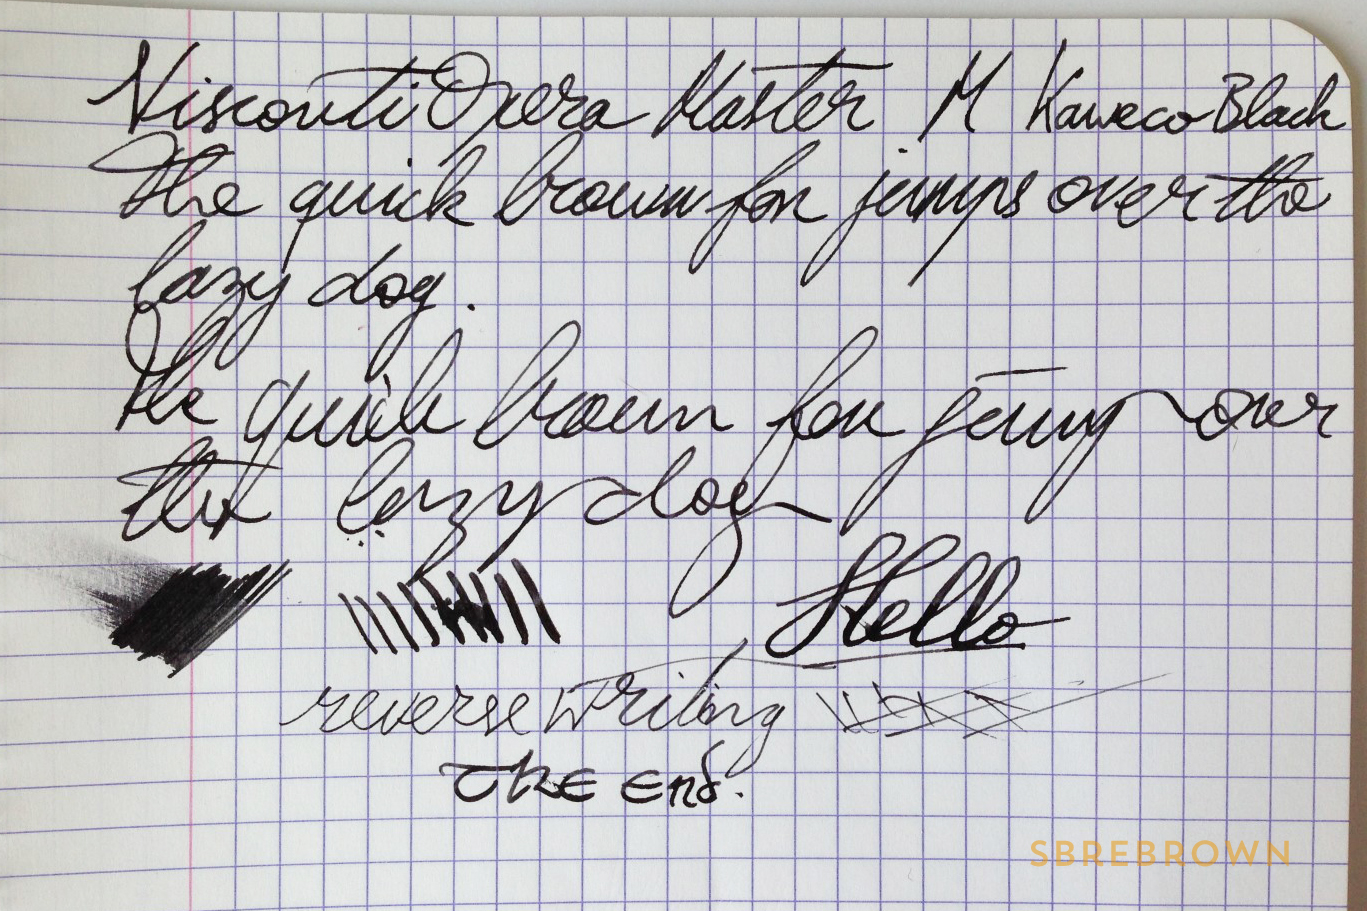 Visconti Opera Master M Kaweco Black
The quick brown fox jumps over the
lazy dog.
The quick brown fox jump over
the lazy dog
Hello
reverse writing
The End.
SBREBROWN